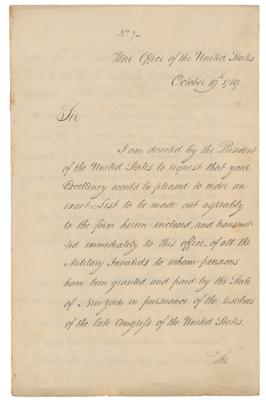 No 7
War Office of the United States
October 19th 1789
Sir
I am directed by the President
of the United States to request that your
Excellency would be pleased to order an
exact List to be made out agreably
to the form herein enclosed, and transmit-
ted immediately to this office, of all the
Military Invalids to whom pensions
have been granted and paid by the State
of New york in pursuance of the resolves
of the late Congress of the United States.
The